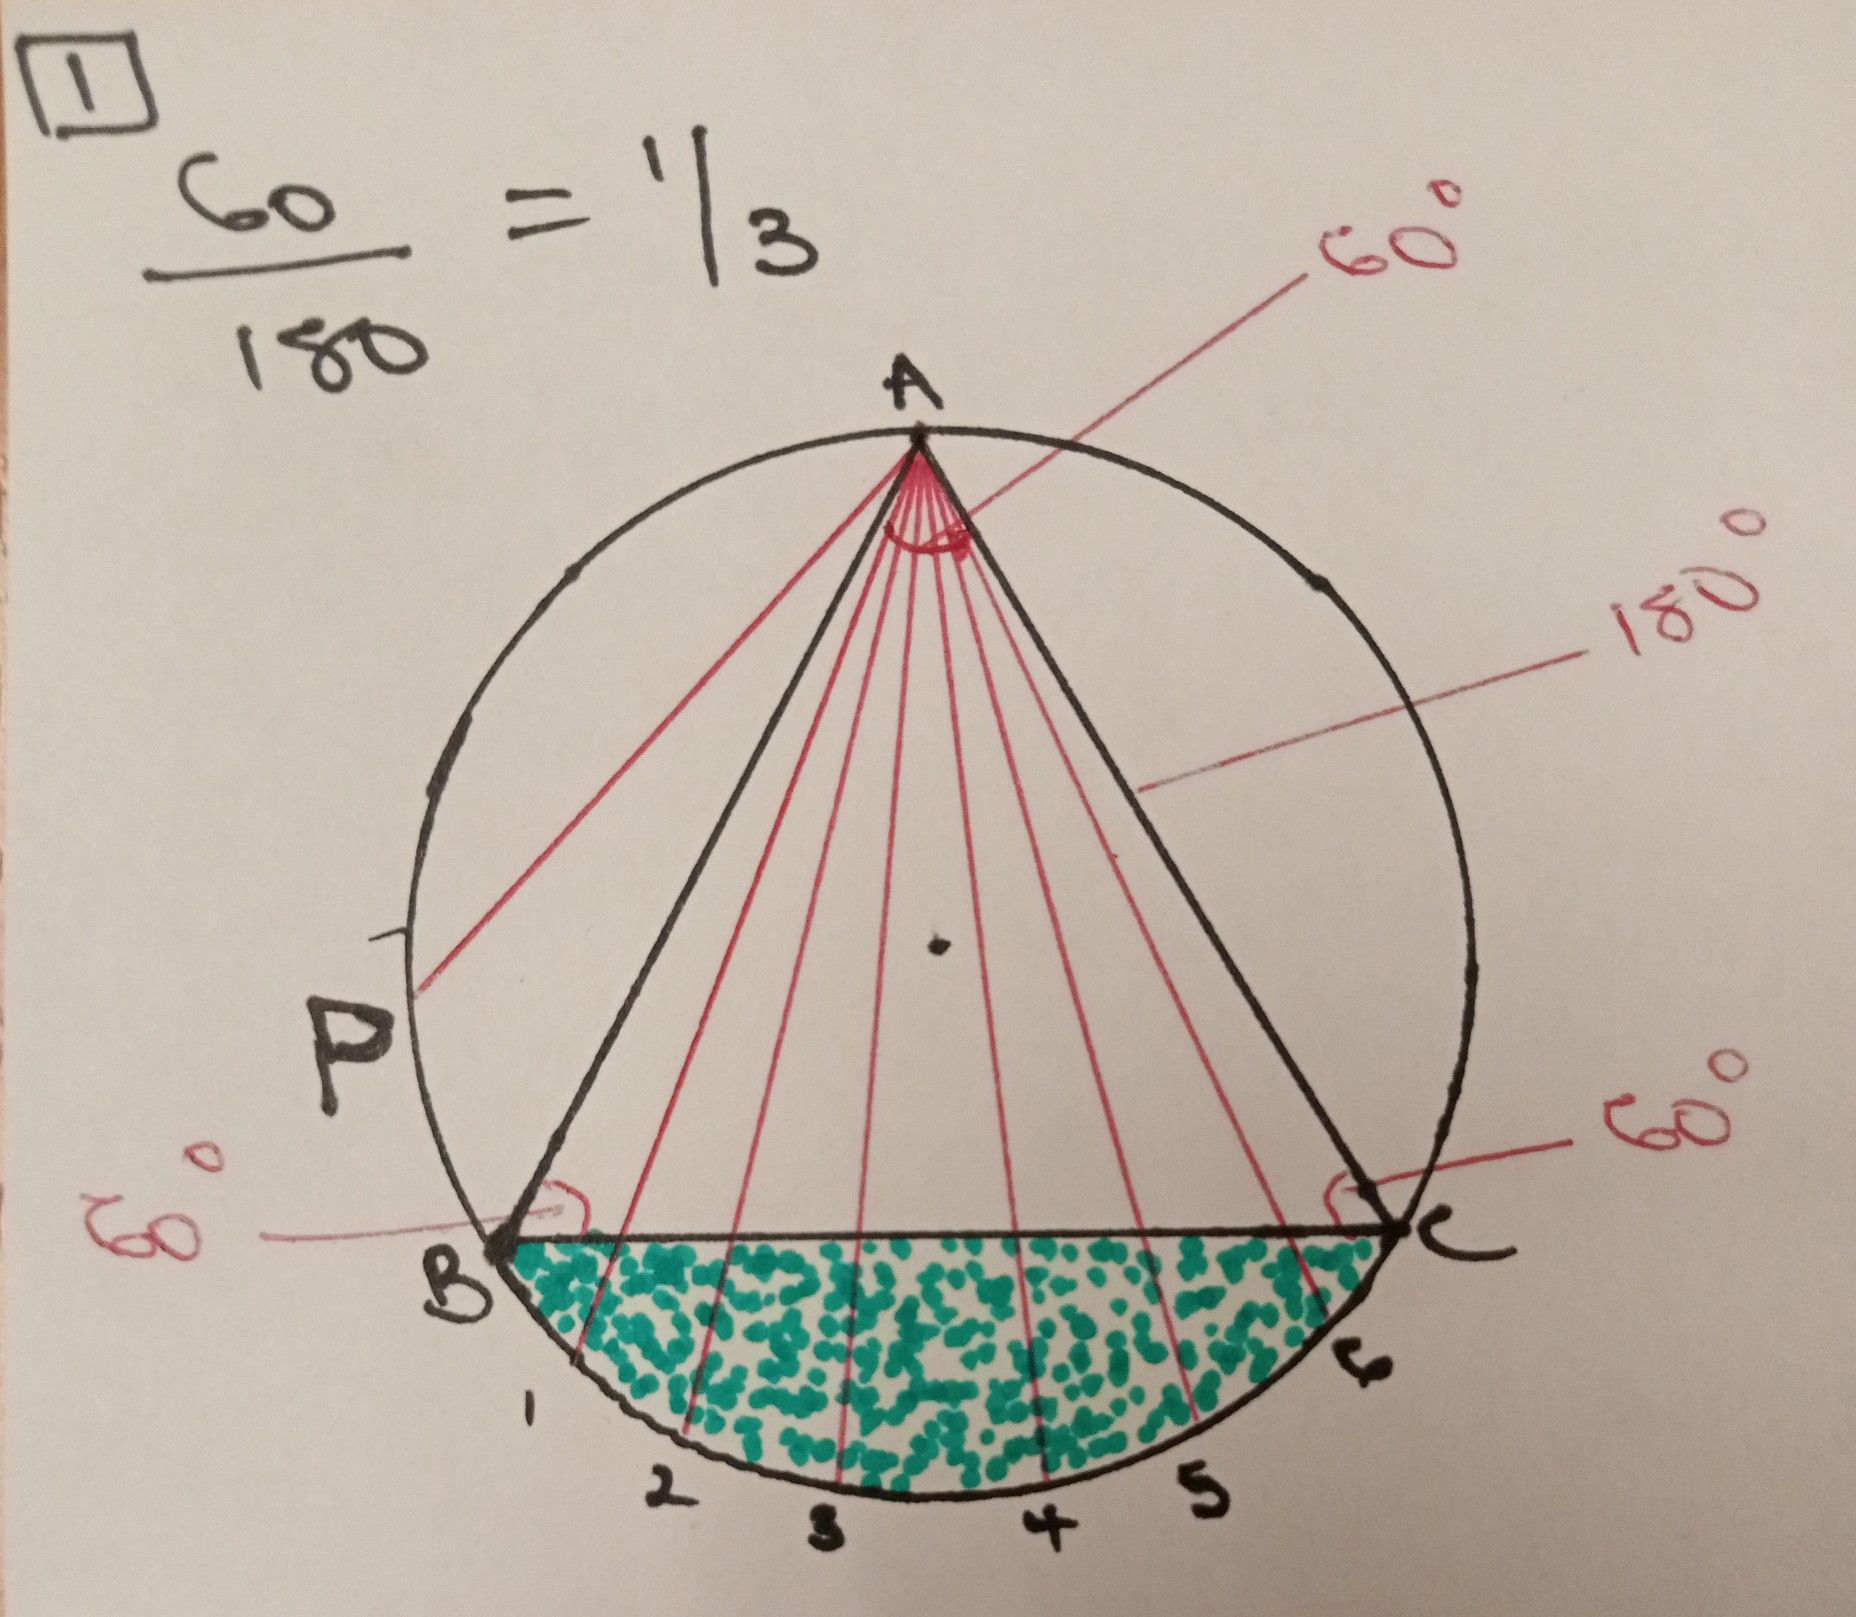 1
60
180
= 1/3
60°
A
180°
P
60°
60°
B
C
1
2
3
4
5
6